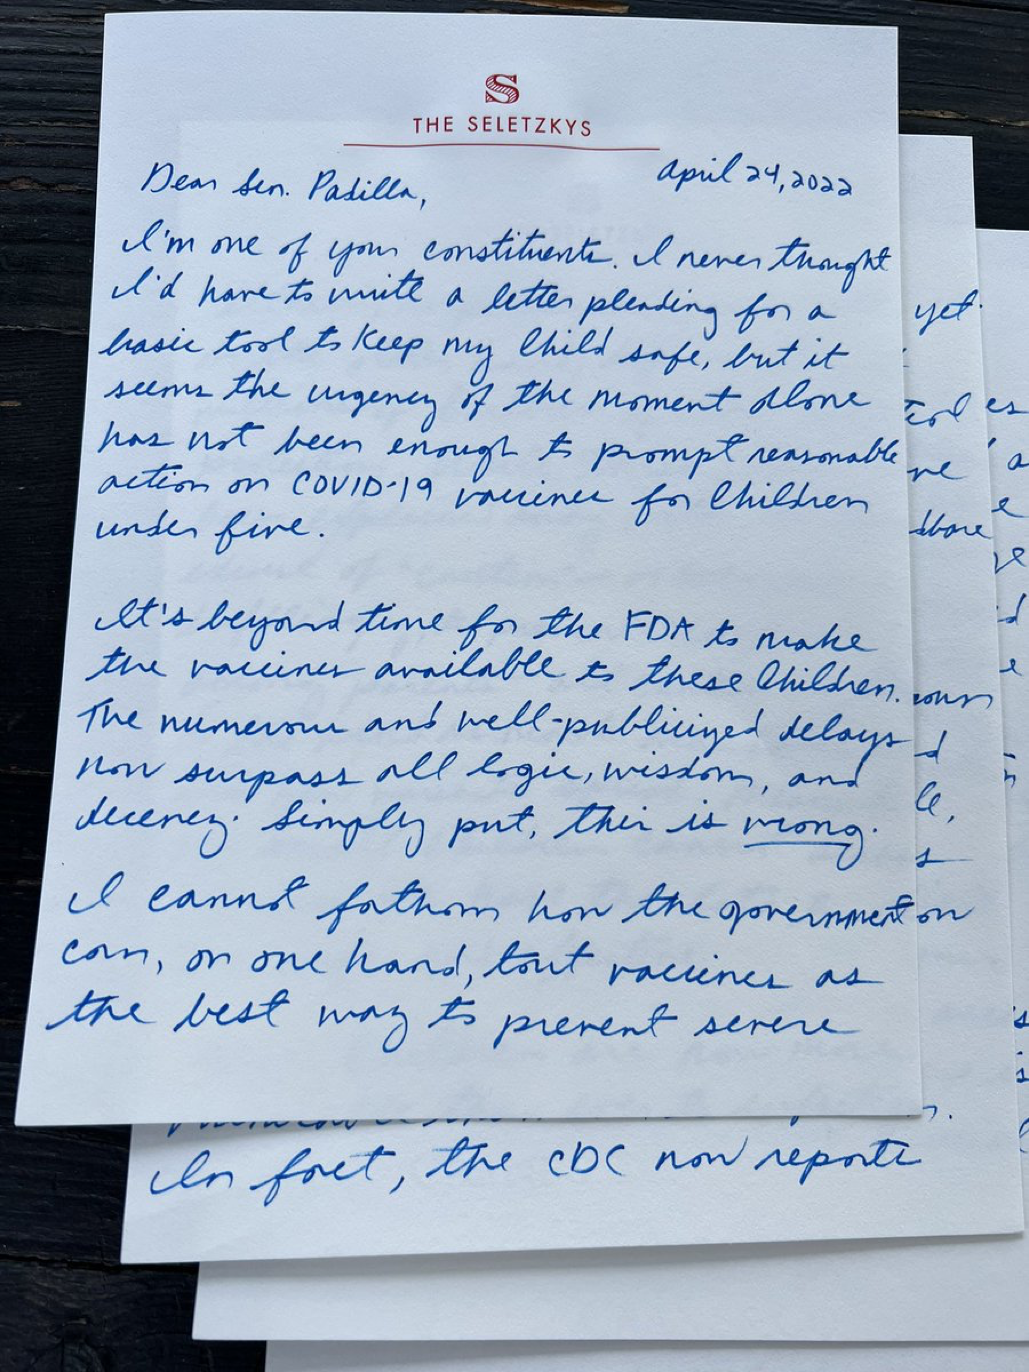 S
THE SELETZKYS
April 24, 2022
Dear Sen. Padilla,
I'm one of your constituents. I never thought
I'd have to write a letter pleading for a
basic tool to keep my child safe, but it
seems the urgency of the moment alone
has not been enough to prompt reasonable
action on COVID-19 vaccines for children
under five.
It's beyond time for the FDA to make
the vaccines available to these children.
The numerous and well-publicized delays
now surpass all logic, wisdom, and
decency. Simply put, this is wrong.
I cannot fathom how the government
can, on one hand, tout vaccines as
the best way to prevent severe
yet
on
In fact, the CDC now reports